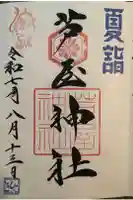 夏詣
芦屋神社
令和七年八月十三日